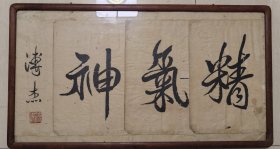 精氣神
溥杰